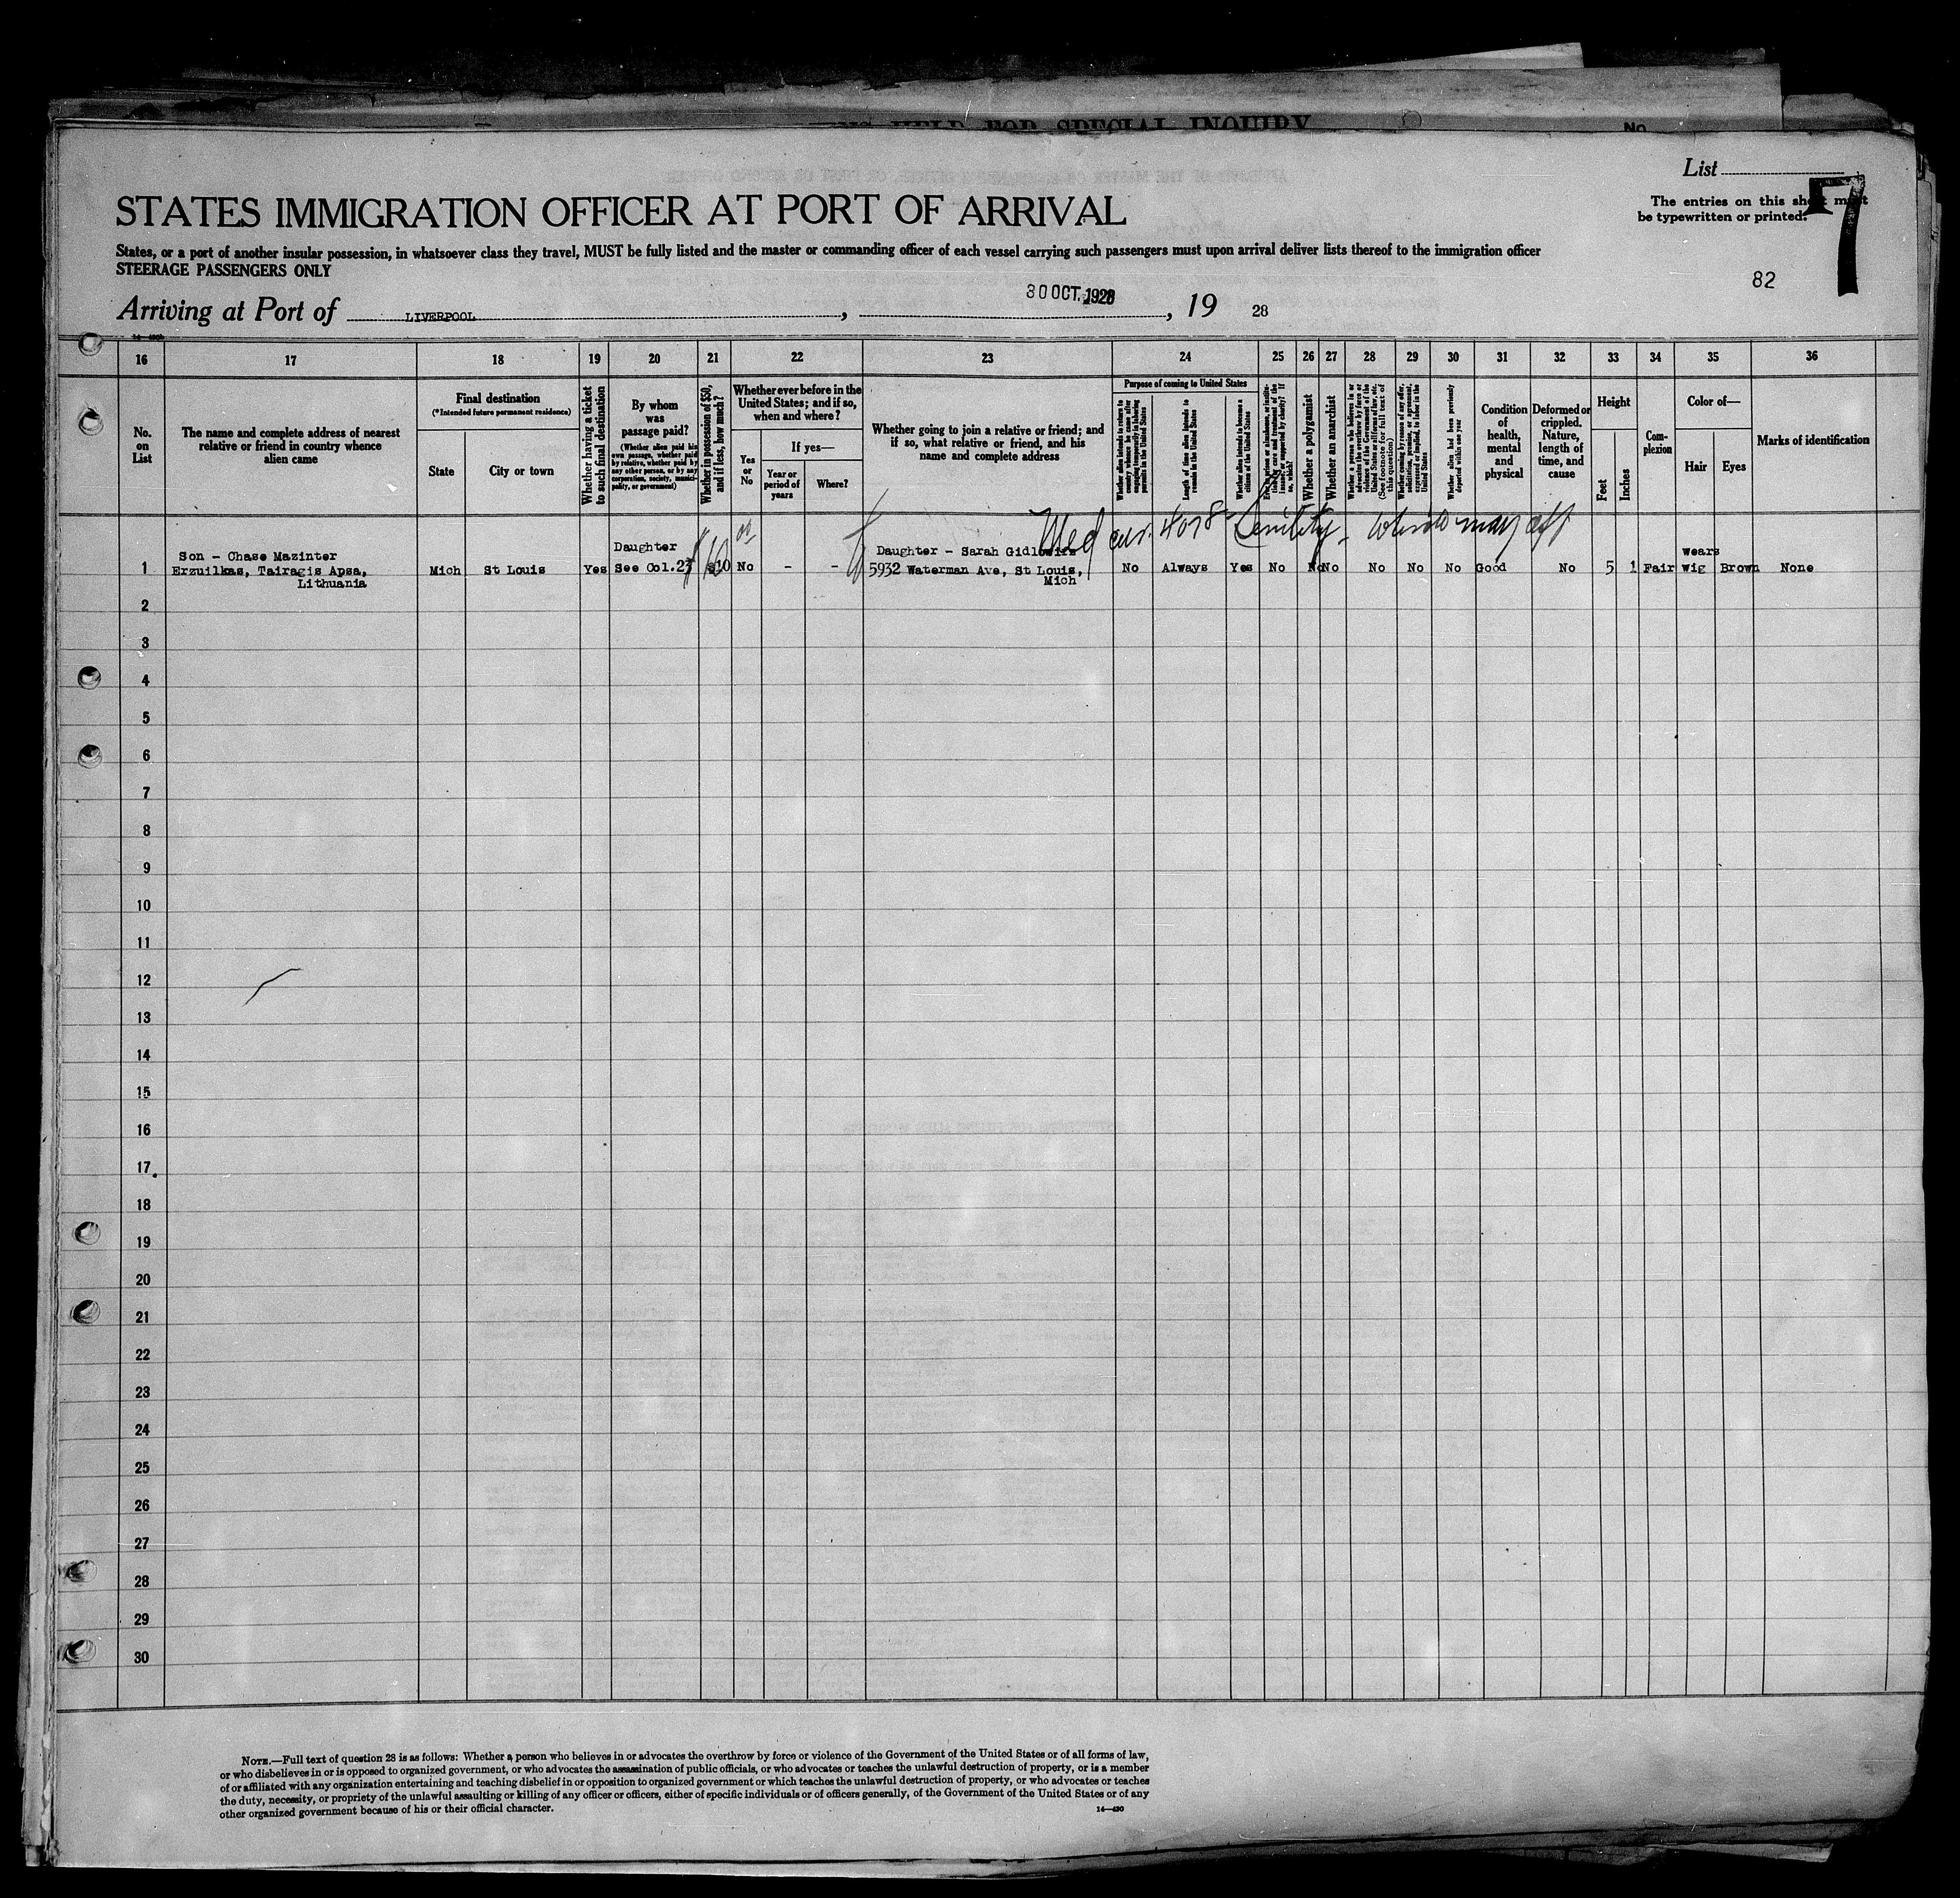 HELD FOR SPECIAL INQUIRY
No.
List
7
The entries on this sheet must
be typewritten or printed.
STATES IMMIGRATION OFFICER AT PORT OF ARRIVAL
States, or a port of another insular possession, in whatsoever class they travel, MUST be fully listed and the master or commanding officer of each vessel carrying such passengers must upon arrival deliver lists thereof to the immigration officer
STEERAGE PASSENGERS ONLY
82
Arriving at Port of LIVERPOOL, 30 OCT. 1928, 19 28
16 17 18 19 20 21 22 23 24 25 26 27 28 29 30 31 32 33 34 35 36
No.
on
List
The name and complete address of nearest
relative or friend in country whence
alien came
Final destination
(*Intended future permanent residence)
State
City or town
Whether having a ticket
to such final destination
By whom
was
passage paid?
(Whether alien paid his
own passage, whether paid
by relative, whether paid by
any other person, or by any
corporation, society, munici-
pality, or government)
Whether in possession of $50,
and if less, how much?
Whether ever before in the
United States; and if so,
when and where?
Yes
or
No
If yes—
Year or
period of
years
Where?
Whether going to join a relative or friend; and
if so, what relative or friend, and his
name and complete address
Purpose of coming to United States
Whether alien intends to return to
country whence he came after
engaging temporarily in laboring
pursuits in the United States
Length of time alien intends to
remain in the United States
Whether alien intends to become a
citizen of the United States
Ever in prison or almshouse, or institu-
tion for care and treatment of the
insane, or supported by charity? If
so, which?
Whether a polygamist
Whether an anarchist
Whether a person who believes in or
advocates the overthrow by force or
violence of the Government of the
United States or all forms of law, etc.
(See footnote for full text of
this question)
Whether coming by reason of any offer,
solicitation, promise, or agreement,
expressed or implied, to labor in the
United States
Whether alien had been previously
deported within one year
Condition
of
health,
mental
and
physical
Deformed or
crippled.
Nature,
length of
time, and
cause
Height
Feet
Inches
Com-
plexion
Color of—
Hair
Eyes
Marks of identification
Med cer. 4078 Senility - which may aff
1
Son - Chase Mazinter
Erzuilkas, Tairagis Apsa,
Lithuania
Mich
St Louis
Yes
Daughter
See Col.23
$10
No
-
-
Daughter - Sarah Gidlowitz
5932 Waterman Ave, St Louis,
Mich
No
Always
Yes
No
No
No
No
No
No
Good
No
5
1
Fair
wears
wig
Brown
None
2
3
4
5
6
7
8
9
10
11
12
13
14
15
16
17
18
19
20
21
22
23
24
25
26
27
28
29
30
NOTE.—Full text of question 28 is as follows: Whether a person who believes in or advocates the overthrow by force or violence of the Government of the United States or of all forms of law,
or who disbelieves in or is opposed to organized government, or who advocates the assassination of public officials, or who advocates or teaches the unlawful destruction of property, or is a member
of or affiliated with any organization entertaining and teaching disbelief in or opposition to organized government or which teaches the unlawful destruction of property, or who advocates or teaches
the duty, necessity, or propriety of the unlawful assaulting or killing of any officer or officers, either of specific individuals or of officers generally, of the Government of the United States or of any
other organized government because of his or their official character.
14—430